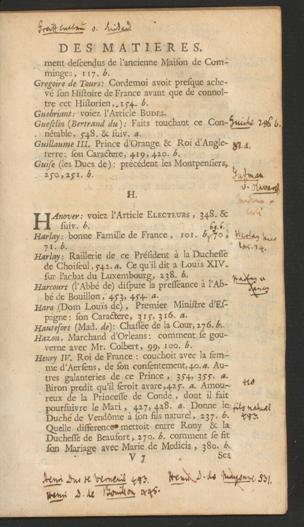 DES MATIERES.
ment descendus de l'ancienne Maison de Com-
minges, 117. b.
Gregoire de Tours: Cordemoi avoit presque ache-
vé son Histoire de France avant que de connoî-
tre cet Historien, 154. b.
Guebriant: voiez l'Article BUDES.
Guesclin (Bertrand du): Faits touchant ce Con-
nétable, 548. & suiv. a.
Guillaume III. Prince d'Orange & Roi d'Angle-
terre: son Caractere, 419, 420. b.
Guise (les Ducs de): précédent les Montpensiers,
250, 251. b.
H.
HAnover: voiez l'Article ELECTEURS, 348. &
suiv. b.
Harlay: bonne Famille de France, 101. b, 70,
71. b.
Harlay: Raillerie de ce Président à la Duchesse
de Choiseul, 542. a. Ce qu'il dit a Louïs XIV.
sur l'achat du Luxembourg, 238. b.
Harcourt (l'Abbé de) dispute la presséance à l'Ab-
bé de Bouillon, 453, 454. a.
Haro (Dom Louïs de), Premier Ministre d'Es-
pagne: son Caractere, 315, 316. a.
Hautefort (Mad. de): Chassée de la Cour, 276. b.
Hazon, Marchand d'Orleans: comment se gou-
verne avec Mr. Colbert, 99, 100. b.
Henry IV. Roi de France: couchoit avec la fem-
me d'Aersens, de son consentement, 40. a. Au-
tres galanteries de ce Prince, 354, 355. a.
Biron prédit qu'il seroit avare, 425. a. Amou-
reux de la Princesse de Condé, dont il fait
poursuivre le Mari, 427, 428. a. Donne le
Duché de Vendôme à son fils naturel, 237. b.
Quelle difference mettoit entre Rony & la
Duchesse de Beaufort, 270. b. comment se fit
son Mariage avec Marie de Medicis, 380. b.
V 3 Ses